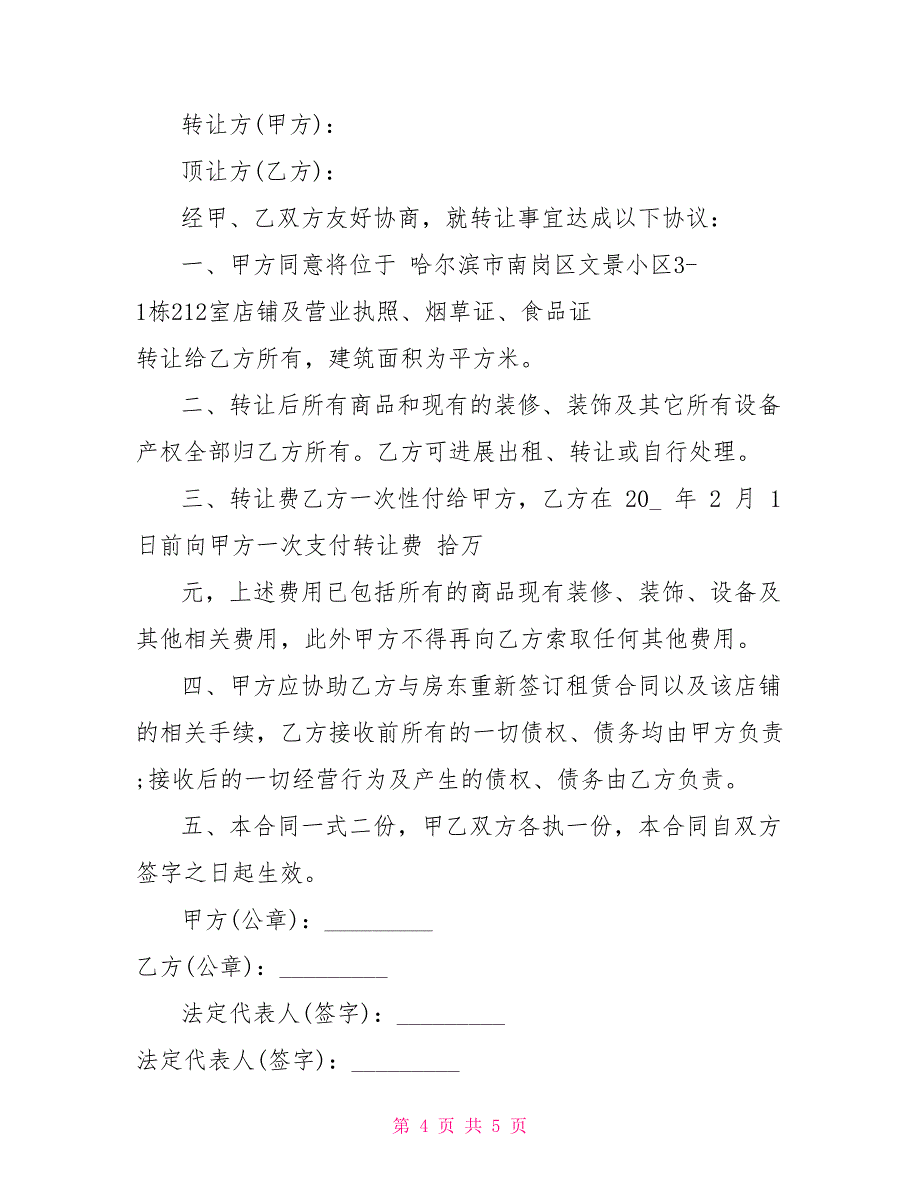 转让方(甲方)：
顶让方(乙方)：
经甲、乙双方友好协商，就转让事宜达成以下协议：
一、甲方同意将位于 哈尔滨市南岗区文景小区3-
1栋212室店铺及营业执照、烟草证、食品证
转让给乙方所有，建筑面积为平方米。
二、转让后所有商品和现有的装修、装饰及其它所有设备
产权全部归乙方所有。乙方可进展出租、转让或自行处理。
三、转让费乙方一次性付给甲方，乙方在 20_ 年 2 月 1
日前向甲方一次支付转让费 拾万
元，上述费用已包括所有的商品现有装修、装饰、设备及
其他相关费用，此外甲方不得再向乙方索取任何其他费用。
四、甲方应协助乙方与房东重新签订租赁合同以及该店铺
的相关手续，乙方接收前所有的一切债权、债务均由甲方负责
;接收后的一切经营行为及产生的债权、债务由乙方负责。
五、本合同一式二份，甲乙双方各执一份，本合同自双方
签字之日起生效。
甲方(公章)：_________
乙方(公章)：_________
法定代表人(签字)：_________
法定代表人(签字)：_________
第 4 页 共 5 页